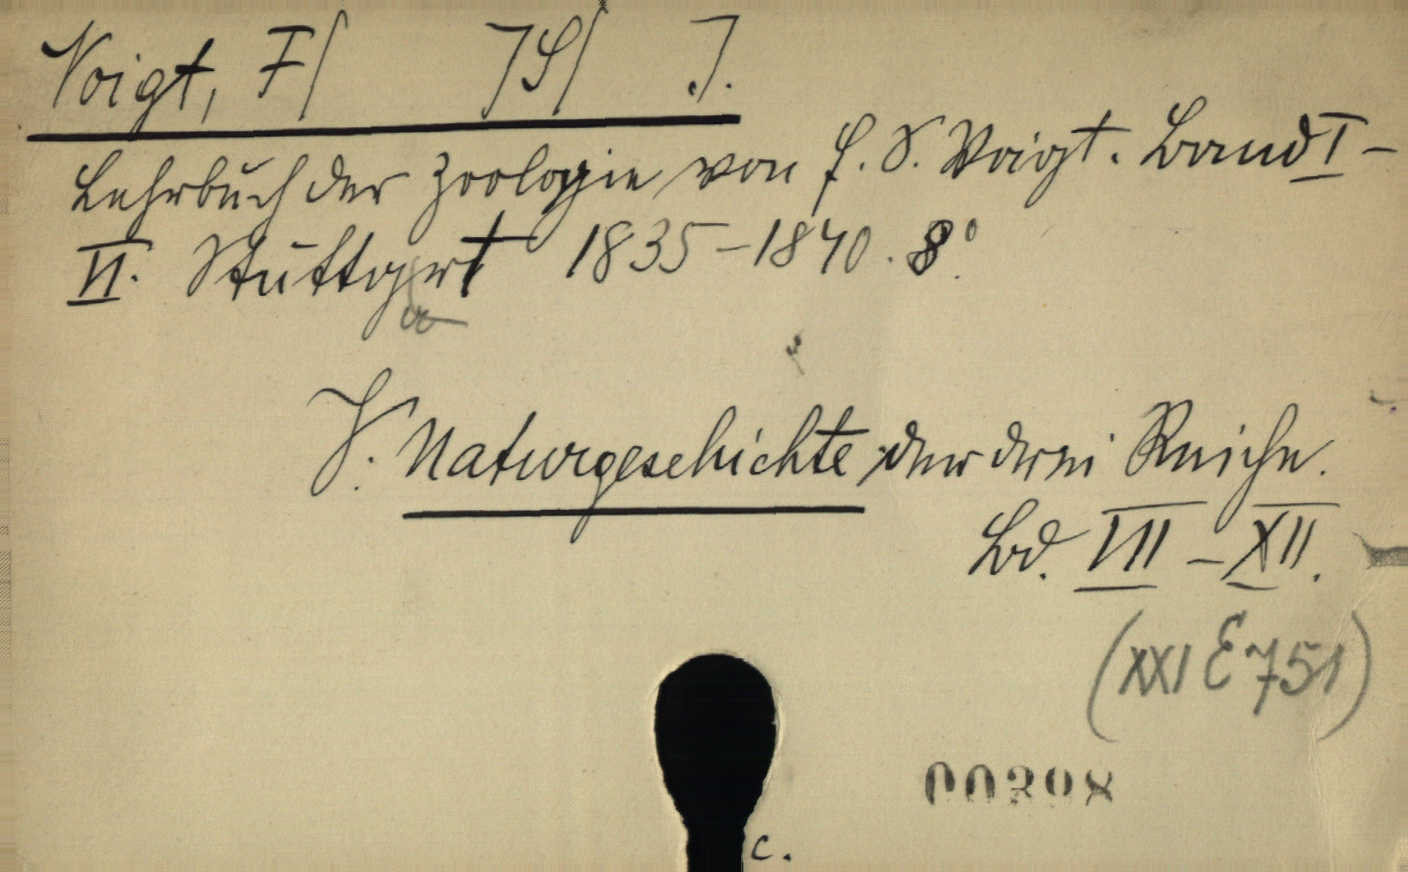 Voigt, F/ ]S/ J.
Lehrbuch der Zoologie von F. S. Voigt. Band I –
VI. Stuttgart 1835–1840. 8°.
V. Naturgeschichte der drei Reiche.
Bd. VII – XII.
(XXI E 751)
c.